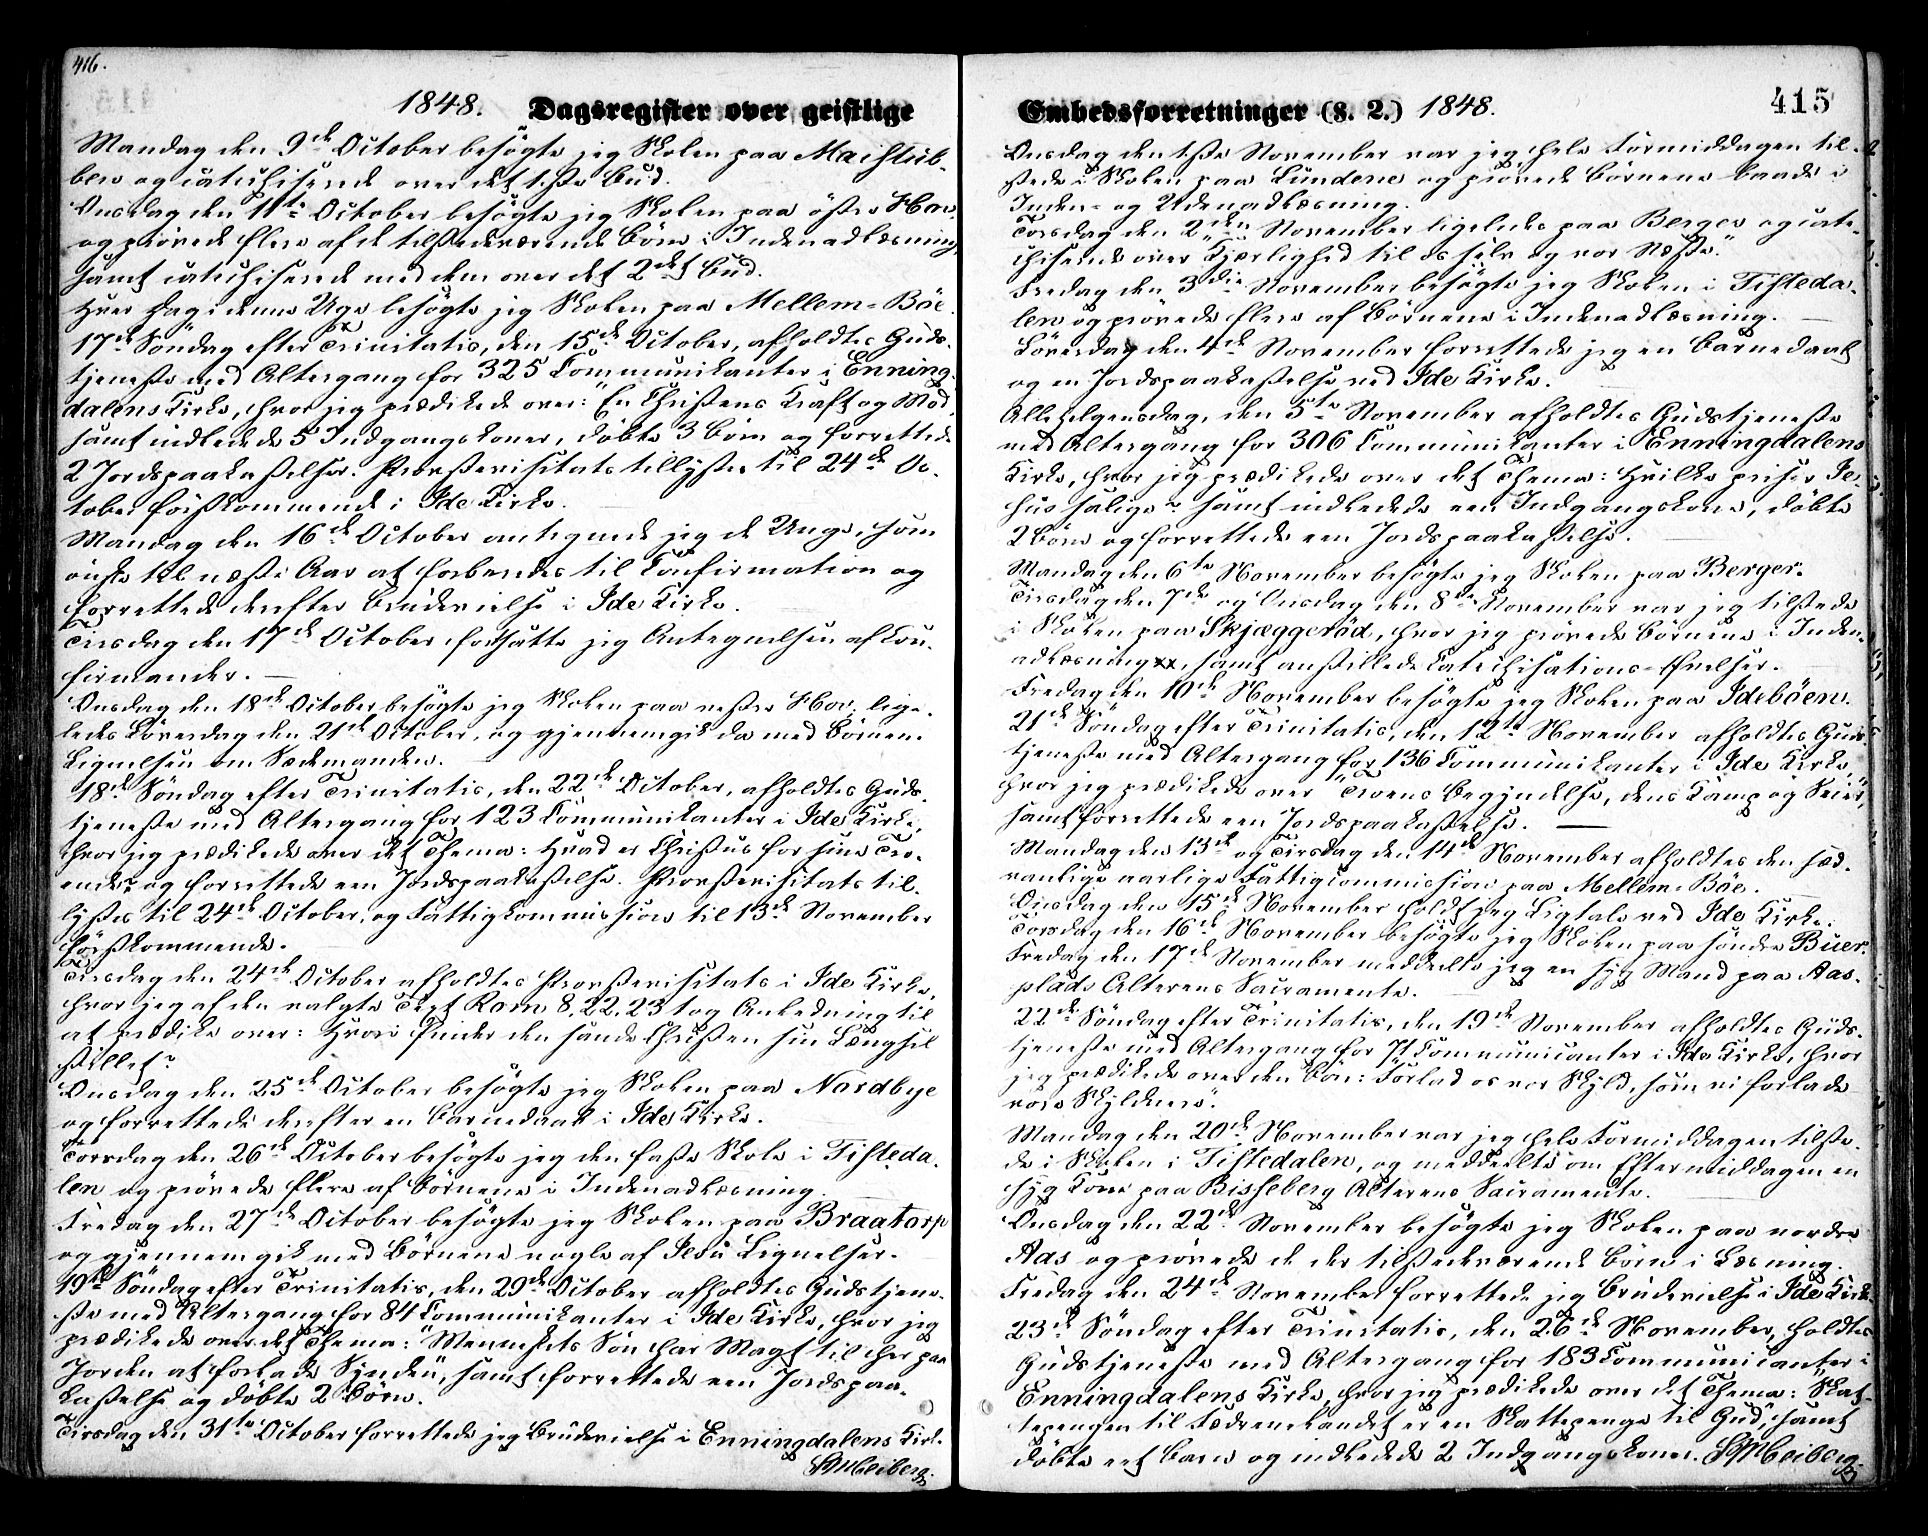 416.
1848. Dagsregister over geistlige
Mandag den 9de October besögte jeg Skolen paa Maistub-
ben og catechiserede over det 1ste Bud.
Onsdag den 11te October besögte jeg Skolen paa östre Hov,
og prövede flere af de tilstedeværende Börn i Indenadlæsning,
samt catechiserede med dem over det 2det Bud.
Hver Dag i denne Uge besögte jeg Skolen paa Mellem-Böe.
17de Söndag efter Trinitatis, den 15de October, afholdtes Guds-
tjeneste med Altergang for 325 Communikanter i Enning-
dalens Kirke, hvor jeg prædikede over: "En Christens Kraft og Mod",
samt indledede 5 Indgangskoner, döbte 3 Börn og forrettede
2 Jordspaakastelser. Provstevisitats tillystes til 24de Oc-
tober förstkommende i Ide Kirke.
Mandag den 16de October antegnede jeg de Unge, som
önske til næste Aar at forberedes til Confirmation og
forrettede derefter Brudevielse i Ide Kirke.
Tirsdag den 17de October fortsatte jeg Antegnelsen af Con-
firmander.
Onsdag den 18de October besögte jeg Skolen paa vestre Hov, lige-
ledes Löverdag den 21de October, og gjennemgik da med Börnene
Lignelsen om Sædemanden.
18de Söndag efter Trinitatis, den 22de October, afholdtes Guds-
tjeneste med Altergang for 123 Communikanter i Ide Kirke,
hvor jeg prædikede over det Thema: Hvad er Christus for sine Tro-
ende? og forrettede een Jordspaakastelse. Provstevisitats til-
lystes til 24de October, og Fattigkommission til 13de November
förstkommende.
Tirsdag den 24de October afholdtes Provstevisitats i Ide Kirke,
hvor jeg af den valgte Text Rom 8, 22, 23 tog Anledning til
at prædike over: Hvori finder den sande Christen sin Længsel
stillet?
Onsdag den 25de October besögte jeg Skolen paa Nordbye
og forrettede derefter en Barnedaab i Ide Kirke.
Torsdag den 26de October besögte jeg den faste Skole i Tisteda-
len og prövede flere af Börnene i Indenadlæsning.
Fredag den 27de October besögte jeg Skolen paa Braatorp
og gjennemgik med Börnene nogle af Jesu Lignelser.
19de Söndag efter Trinitatis, den 29de October afholdtes Gudstjene-
ste med Altergang for 84 Communikanter i Ide Kirke, hvor jeg
prædikede over det Thema: "Menneskets Sön har Magt til her paa
Jorden at forlade Synden", samt forrettede een Jordspaa-
kastelse og döbte 2 Börn.
Tirsdag den 31te October forrettede jeg Brudevielse i Enningdalens Kirke.
Heiberg.
Embedsforretninger (§. 2.) 1848.
415
Onsdag den 1ste November var jeg hele Formiddagen til-
stede i Skolen paa Lundene og prövede Börnene baade i
Inden- og Udenadlæsning.
Torsdag den 2den November ligeledes paa Berger og cate-
chiserede over "Kjærlighed til os selv og vor Næste".
Fredag den 3die November besögte jeg Skolen i Tisteda-
len og prövede flere af Börnene i Indenadlæsning.
Löverdag den 4de November forrettede jeg en Barnedaab
og en Jordspaakastelse ved Ide Kirke.
Allehelgensdag, den 5te November afholdtes Gudstjeneste
med Altergang for 306 Communikanter i Enningdalens
Kirke, hvor jeg prædikede over det Thema: Hvilke priser Je-
sus salige? samt indledede een Indgangskone, döbte
2 Börn og forrettede een Jordspaakastelse.
Mandag den 6te November besögte jeg Skolen paa Berger.
Tirsdag den 7de og Onsdag den 8de November var jeg tilstede
i Skolen paa Skjæggeröd, hvor jeg prövede Börnene i Inden-
adlæsning, samt anstillede Catechisations-Övelser.
Fredag den 10de November besögte jeg Skolen paa Ideböen.
21de Söndag efter Trinitatis, den 12te November afholdtes Guds-
tjeneste med Altergang for 136 Communikanter i Ide Kirke,
hvor jeg prædikede over "Troens Begyndelse, dens Kamp og Seier",
samt forrettede een Jordspaakastelse.
Mandag den 13de og Tirsdag den 14de November afholdtes den sæd-
vanlige aarlige Fattigcommission paa Mellem-Böe.
Onsdag den 15de November holdt jeg Ligtale ved Ide Kirke.
Torsdag den 16de November besögte jeg Skolen paa söndre Buer.
Fredag den 17de November meddeelte jeg en syg Mand paa Aas-
plads Alterens Sacramente.
22de Söndag efter Trinitatis, den 19de November afholdtes Guds-
tjeneste med Altergang for 71 Communicanter i Ide Kirke, hvor
jeg prædikede over den Bön: "Forlad os vor Skyld, som vi forlade
vore Skyldnere".
Mandag den 20de November var jeg hele Formiddagen tilste-
de i Skolen i Tistedalen, og meddeelte om Eftermiddagen en
syg Kone paa Bisseberg Alterens Sacramente.
Onsdag den 22de November besögte jeg Skolen paa nordre
Aas og prövede de der tilstedeværende Börn i Læsning.
Fredag den 24de November forrettede jeg Brudevielse i Ide Kirke.
23de Söndag efter Trinitatis, den 26de November, holdtes
Gudstjeneste med Altergang for 183 Communicanter i
Enningdalens Kirke, hvor jeg prædikede over det Thema: "Skat-
tepengen til Fædrenelandet er en Skattepenge til Gud", samt
döbte eet Barn og indledede 2 Indgangskoner. Heiberg.